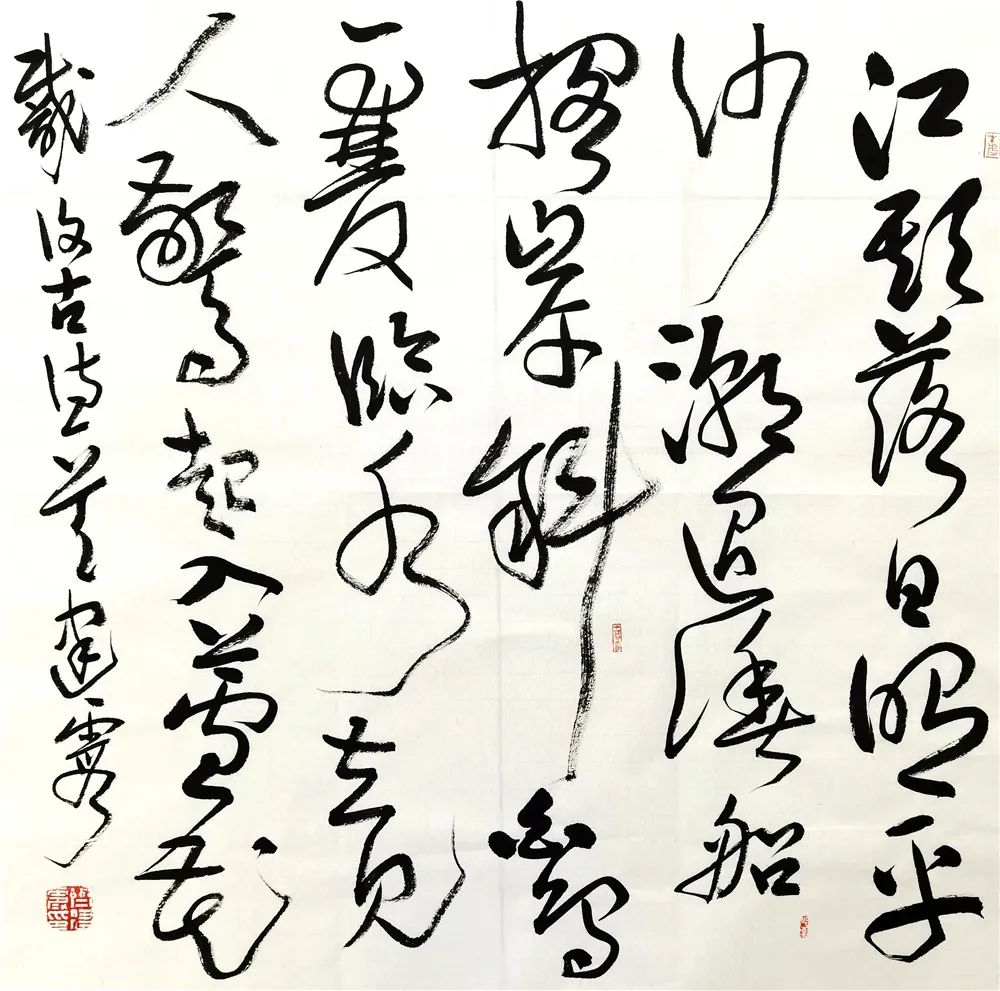 江頭落日照平
沙潮退漁船
擱岸斜白鳥
一雙臨水立見
人驚起入蘆花
戴復古詩